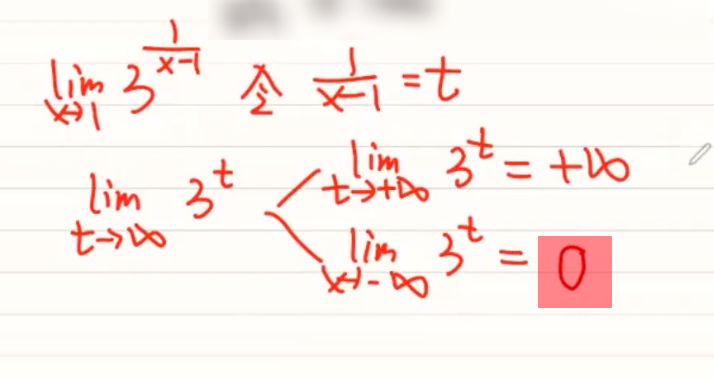 lim x→1 3^(1/(x-1)) 令 1/(x-1) = t
lim t→∞ 3^t < lim t→+∞ 3^t = +∞
lim x→-∞ 3^t = 0